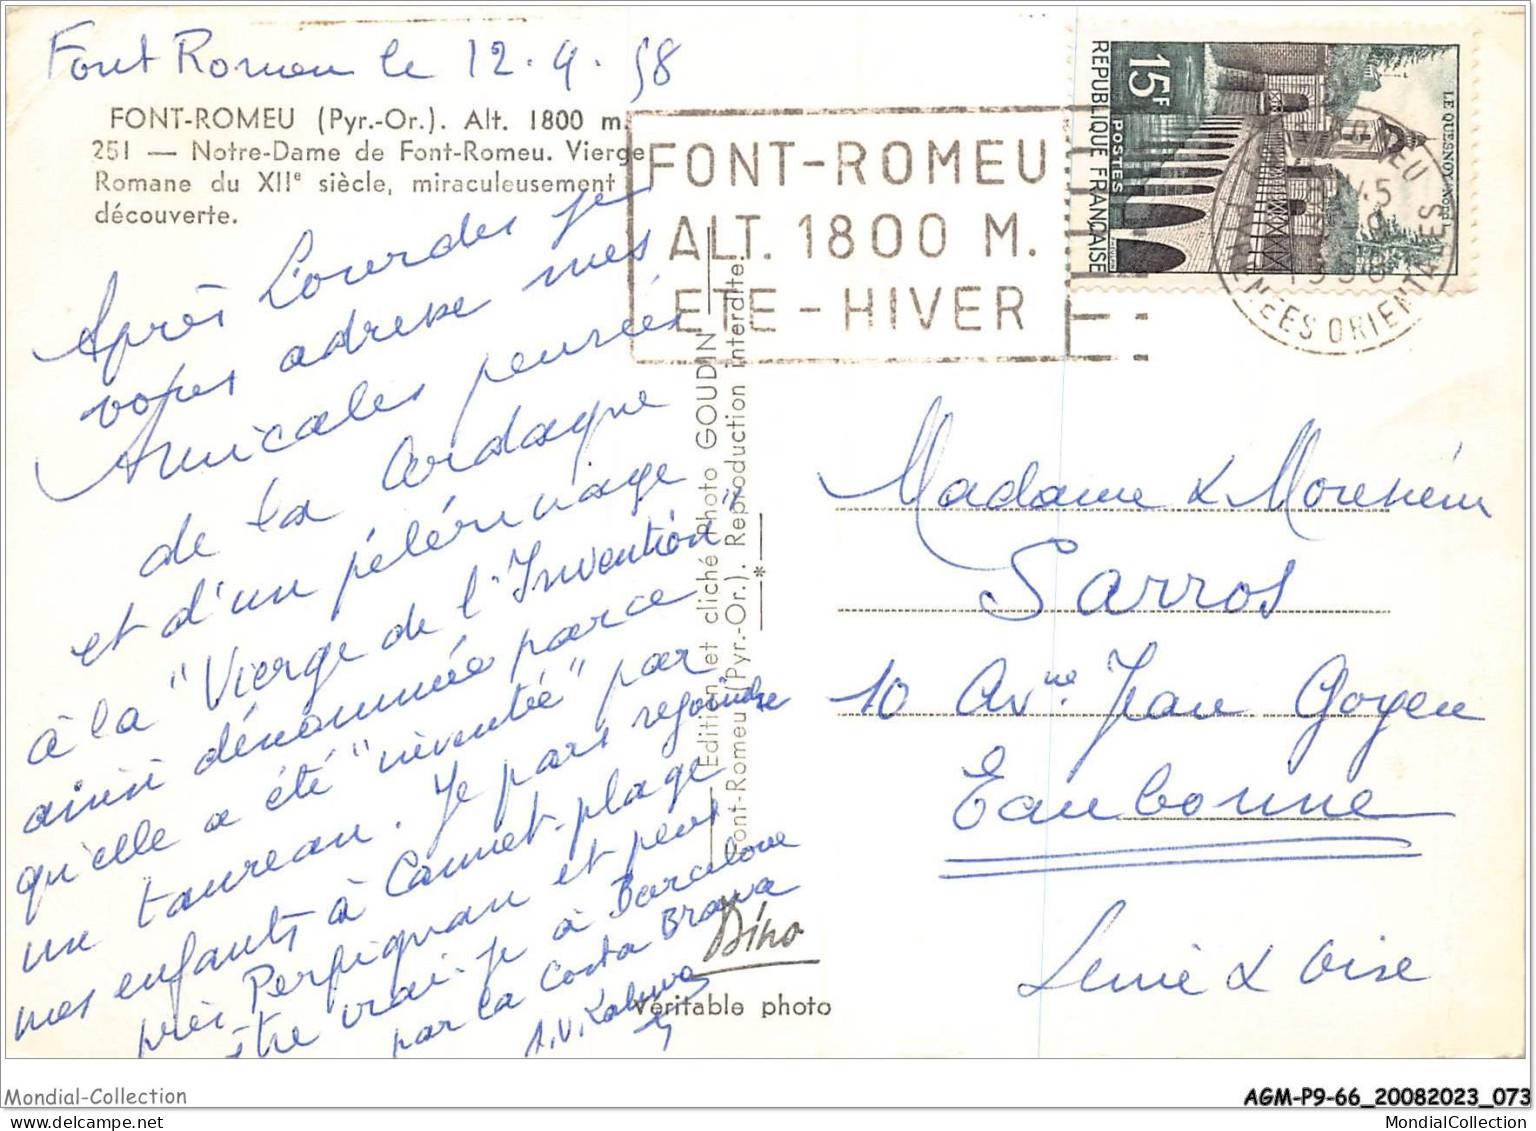 Font Romeu le 12.9.58
FONT-ROMEU (Pyr.-Or.). Alt. 1800 m.
251 — Notre-Dame de Font-Romeu. Vierge
Romane du XIIe siècle, miraculeusement
découverte.
Après Lourdes je
vous adresse mes
Amicales pensées
de la Cerdagne
et d'un pélérinage
à la "Vierge de l'Invention"
ainsi dénommée parce
qu'elle a été "inventée" par
un taureau. Je pars rejoindre
mes enfants à Cannet-plage
près Perpignan et peut
être irai-je à Barcelone
par la Costa Brava
Edition et cliché Photo GOUDIN
Font-Romeu (Pyr.-Or.). Reproduction interdite.
*
Dino
Véritable photo
FONT-ROMEU
ALT. 1800 M.
ETE - HIVER
15F
POSTES
REPUBLIQUE FRANÇAISE
LE QUESNOY-NORD
PYRENEES ORIENTALES
Madame & Monsieur
Sarros
10 Avnue Jean Goyen
Eaubonne
Seine & Oise
Mondial-Collection
AGM-P9-66_20082023_073
MondialCollection